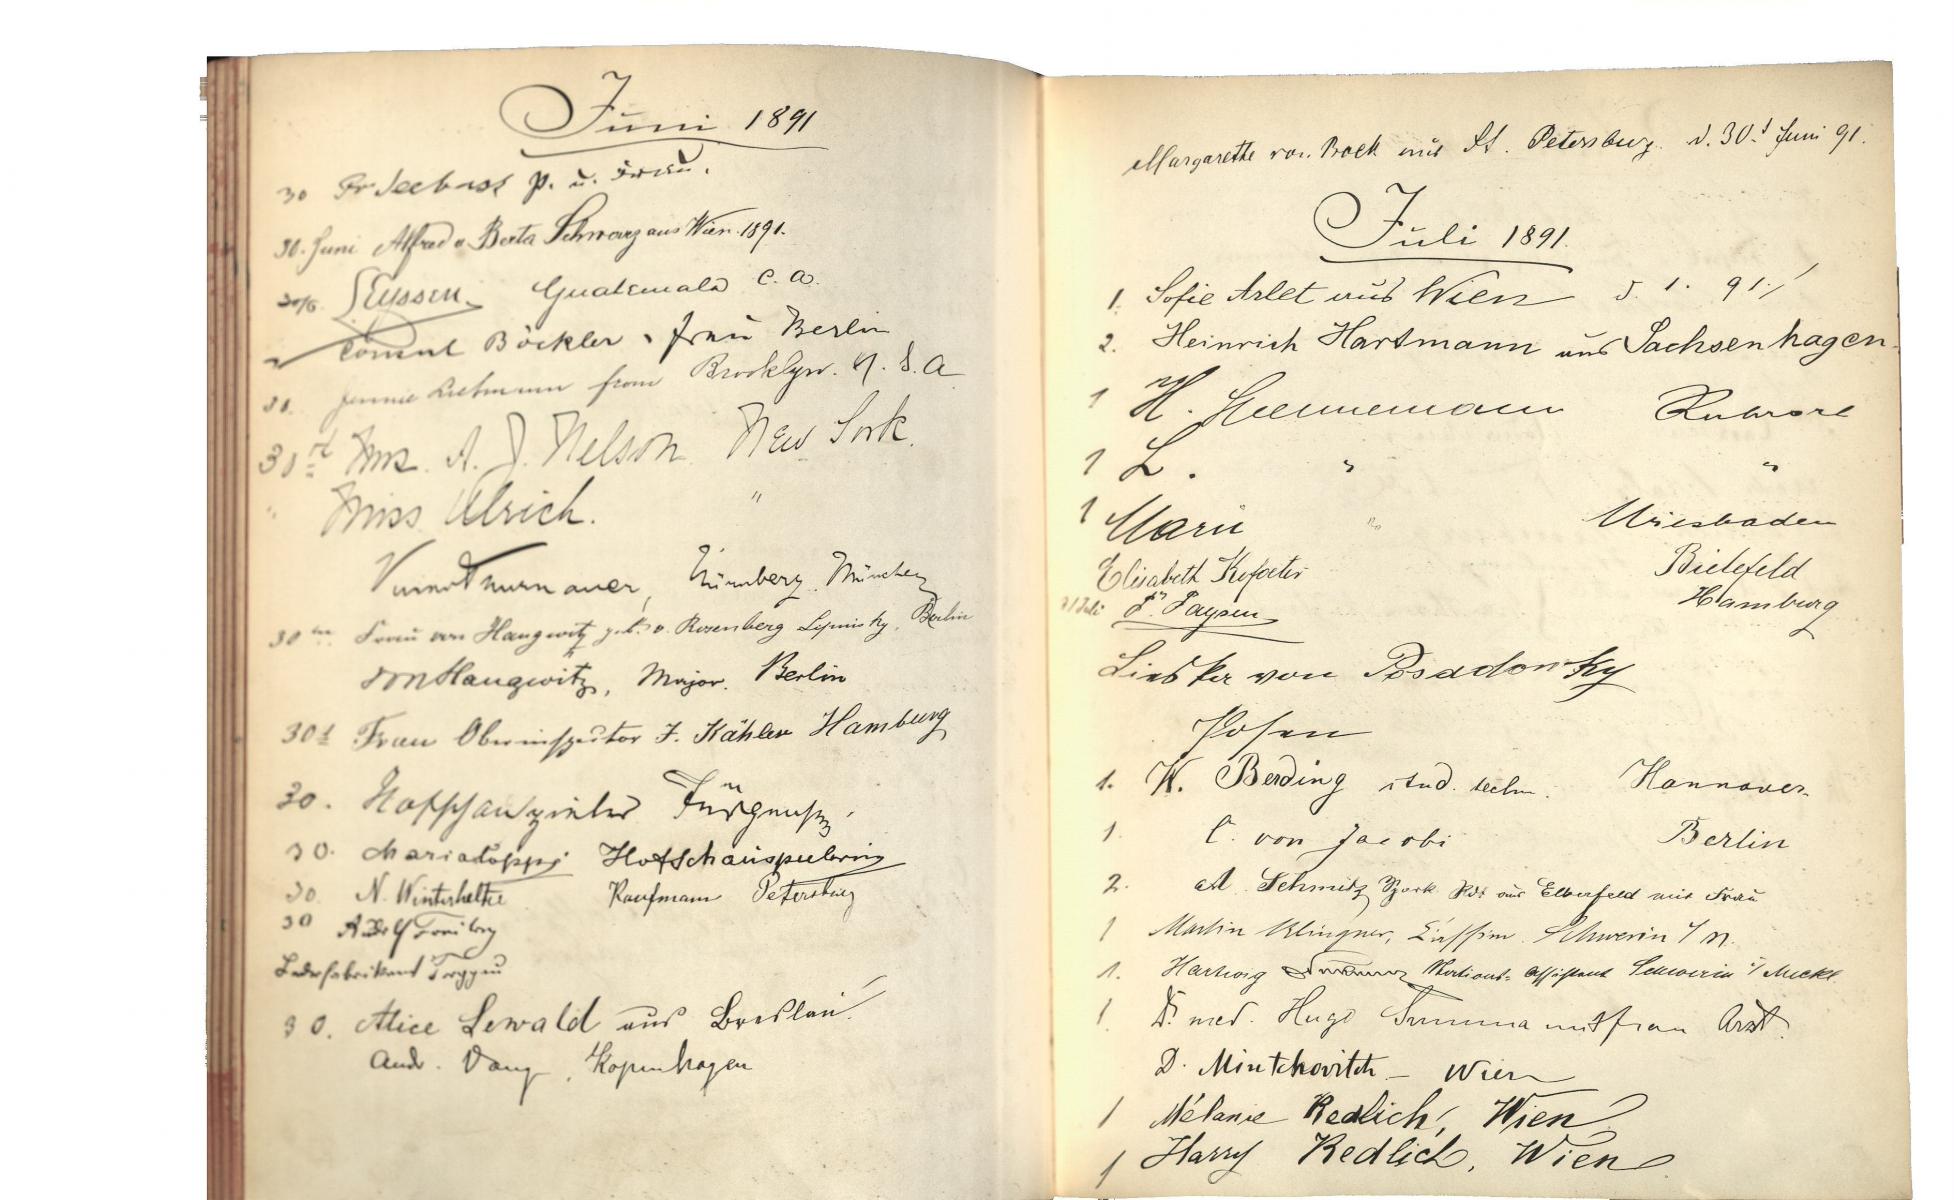 Juni 1891
30 Fr Seebass p. u. Frau.
30. Juni Alfred u. Berta Schwarz aus Wien 1891.
30/6. Guatemala C. A.
Consul Böckler u Frau Berlin
30. Jennie Liebmann from Brooklyn. U. S. A
30th Mrs. A. J. Nelson New York.
" Miss Ulrich. "
Nürnberg. München
30ten Frau von Haugwitz geb. v. Rosenberg Lipinsky, Berlin
von Haugwitz, Major. Berlin
30t Frau Oberinspector F. Kähler Hamburg
30. Hofschauspieler
30. Hofschauspielerin
30. N. Winterhalter Kaufmann Petersburg
30 Adolf
Lederfabrikant Torgau
30. Alice Lewald aus Breslau.
Andr. Kopenhagen
Margarethe von Prock aus St. Petersburg. d. 30.t Juni 91.
Juli 1891.
1. Sofie Arlet aus Wien d. 1. 91.
2. Heinrich Hartmann aus Sachsenhagen.
1 H. Ruhrort
1 L. " "
1 Marie " Wiesbaden
Elisabeth Bielefeld
1/Juli Paysen Hamburg
von Posadowsky
Posen
1. W. Berding stud. techn. Hannover.
1. C. von Jacobi Berlin
2. A. Schmitz aus Elberfeld mit Frau
1 Martin Klingner, Schwerin i/M.
1. Hartwig Assistent Schwerin i/Meckl.
1. Dr. med. Hugo Summa mit Frau Arzt.
D. Mintchovitch – Wien
1 Mélanie Redlich, Wien
1 Harry Redlich, Wien